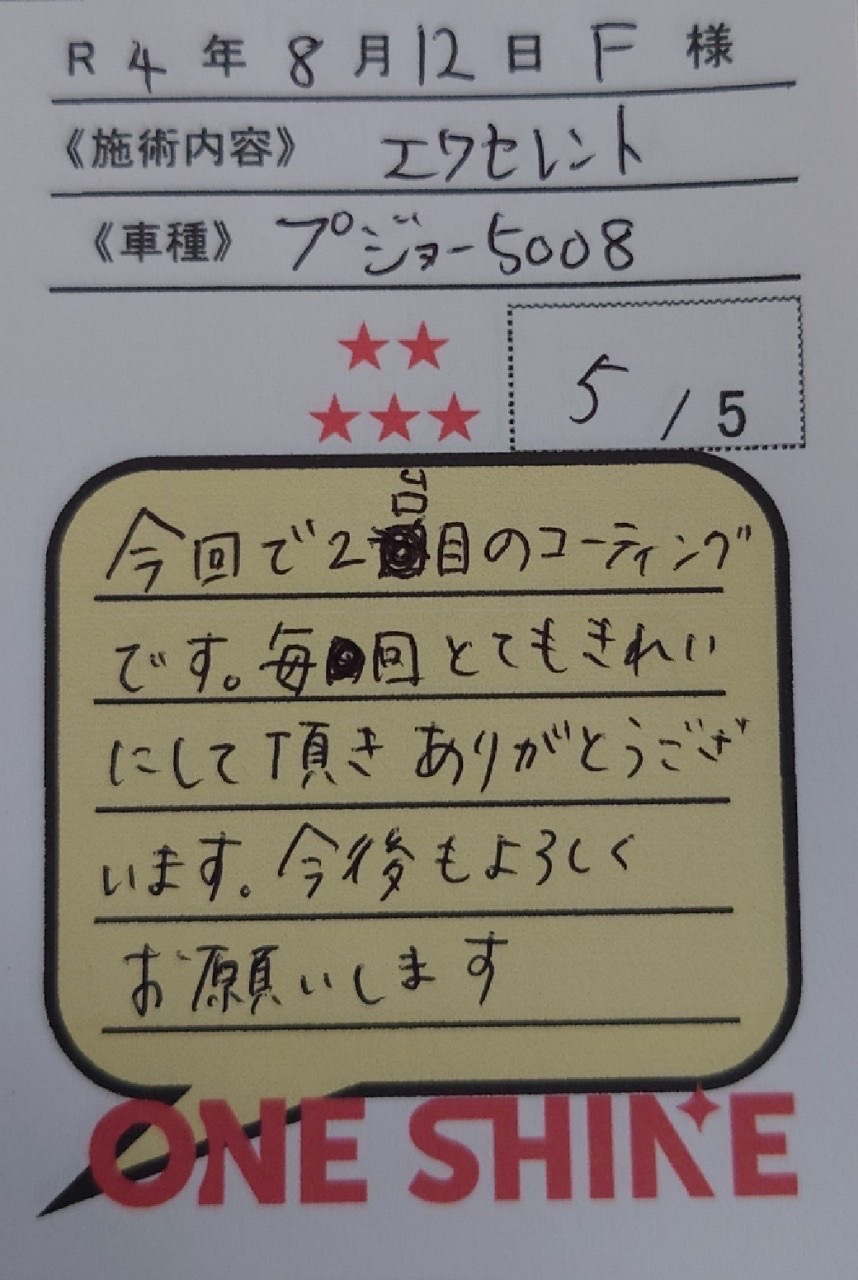 R 4 年 8 月 12 日 F 様
《施術内容》 エクセレント
《車種》 プジョー5008
★★
★★★ 5 / 5
今回で2台目のコーティング
です。毎回とてもきれい
にして頂きありがとうござ
います。今後もよろしく
お願いします
ONE SHINE